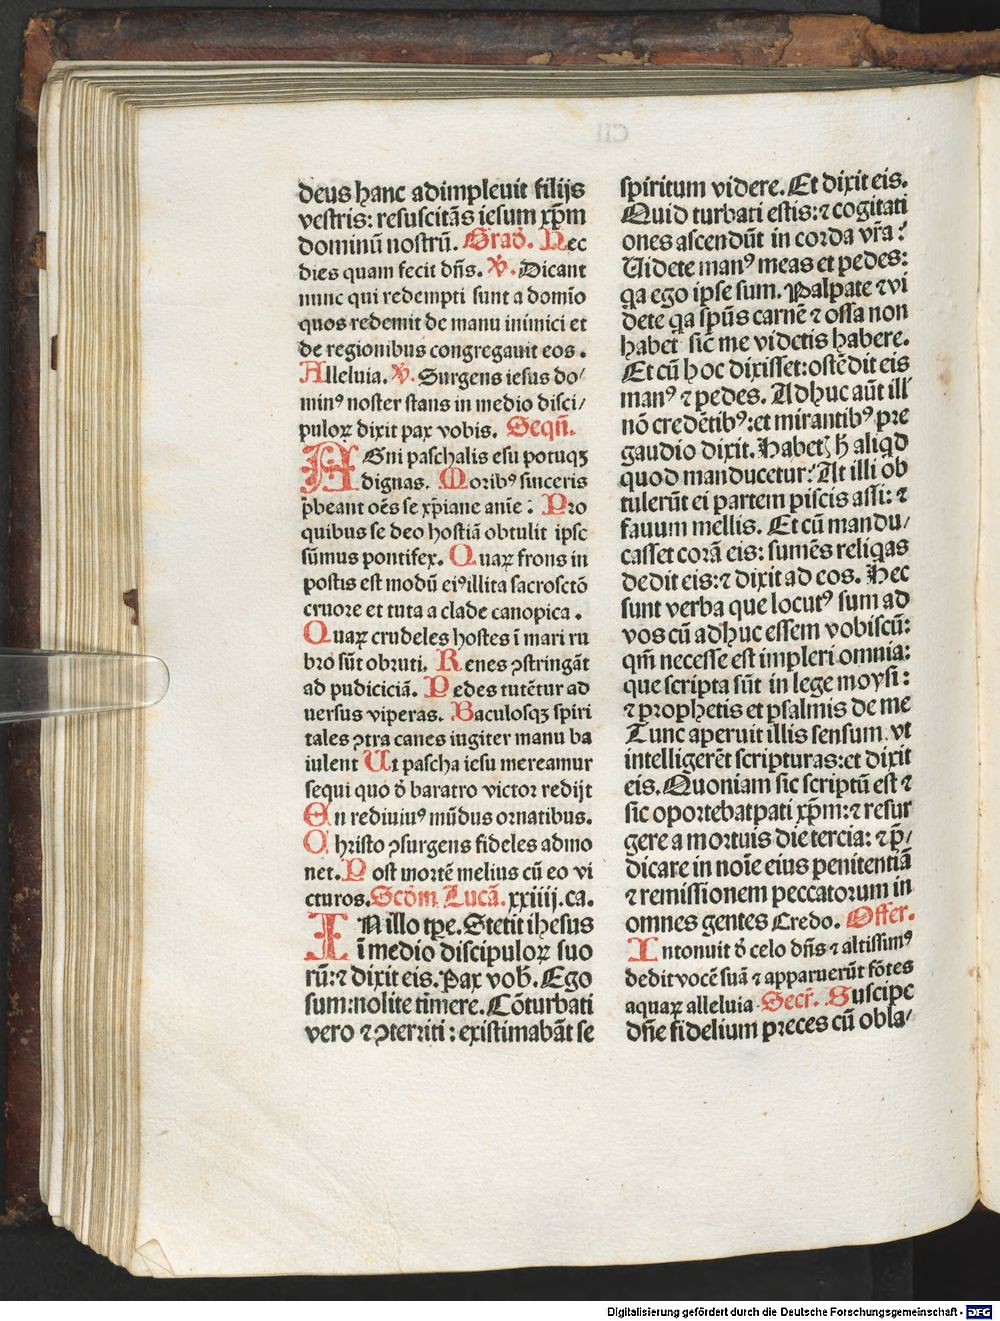 deus hanc adimpleuit filijs
vestris: resuscitãs iesum xp̃m
dominũ nostrũ. Grad̃. Hec
dies quam fecit dñs. ℣. Dicant
nunc qui redempti sunt a domĩo
quos redemit de manu inimici et
de regionibus congregauit eos.
Alleluia. ℣. Surgens iesus do⸗
minꝰ noster stans in medio disci⸗
puloꝝ dixit pax vobis. Seqñ.
AGni paschalis esu potuqꝫ
dignas. Moribꝰ sinceris
p̃beant oẽs se xp̃iane anĩe: Pro
quibus se deo hostiã obtulit ipse
sũmus pontifex. Quaꝝ frons in
postis est modũ eiꝰ illita sacrosctõ
cruore et tuta a clade canopica.
Quaꝝ crudeles hostes ĩ mari ru
bro sũt obruti. Renes ꝯstringãt
ad pudiciciã. Pedes tutẽtur ad
uersus viperas. Baculosqꝫ spiri
tales ꝯtra canes iugiter manu ba
iulent Ut pascha iesu mereamur
sequi quo d̃ baratro victor redijt
En rediuiuꝰ mũdus ornatibus.
Christo ꝯsurgens fideles admo
net. Post mortẽ melius cũ eo vi
cturos. Scd̃m Lucã. xxiiij. ca.
IN illo tp̃e. Stetit ihesus
ĩ medio discipuloꝝ suo
rũ: ⁊ dixit eis. Pax vob̃. Ego
sum: nolite timere. Cõturbati
vero ⁊ ꝯterriti: existimabãt se
CII
spiritum videre. Et dixit eis.
Quid turbati estis: ⁊ cogitati
ones ascendũt in corda vr̃a?
Uidete manꝰ meas et pedes:
qa ego ipse sum. Palpate ⁊ vi
dete qa sp̃us carnẽ ⁊ ossa non
habet sic̃ me videtis habere.
Et cũ hoc dixisset: ostẽdit eis
manꝰ ⁊ pedes. Adhuc aũt ill̃
nõ credẽtibꝰ: et mirantibꝰ pre
gaudio dixit. Habetꝭ h̃ aliqd
quod manducetur? At illi ob
tulerũt ei partem piscis assi: ⁊
fauum mellis. Et cũ mandu⸗
casset corã eis: sumẽs reliqas
dedit eis: ⁊ dixit ad eos. Hec
sunt verba que locutꝰ sum ad
vos cũ adhuc essem vobiscũ:
qm̃ necesse est impleri omnia:
que scripta sũt in lege moysi:
⁊ prophetis et psalmis de me
Tunc aperuit illis sensum vt
intelligerẽt scripturas: et dixit
eis. Quoniam sic scriptũ est ⁊
sic oportebat pati xp̃m: ⁊ resur
gere a mortuis die tercia: ⁊ p̃⸗
dicare in noĩe eius penitentiã
⁊ remissionem peccatorum in
omnes gentes Credo. Offer.
Intonuit d̃ celo dñs ⁊ altissimꝰ
dedit vocẽ suã ⁊ apparuerũt fõtes
aquaꝝ alleluia. Secr̃. Suscipe
dñe fidelium preces cũ obla⸗
Digitalisierung gefördert durch die Deutsche Forschungsgemeinschaft - DFG